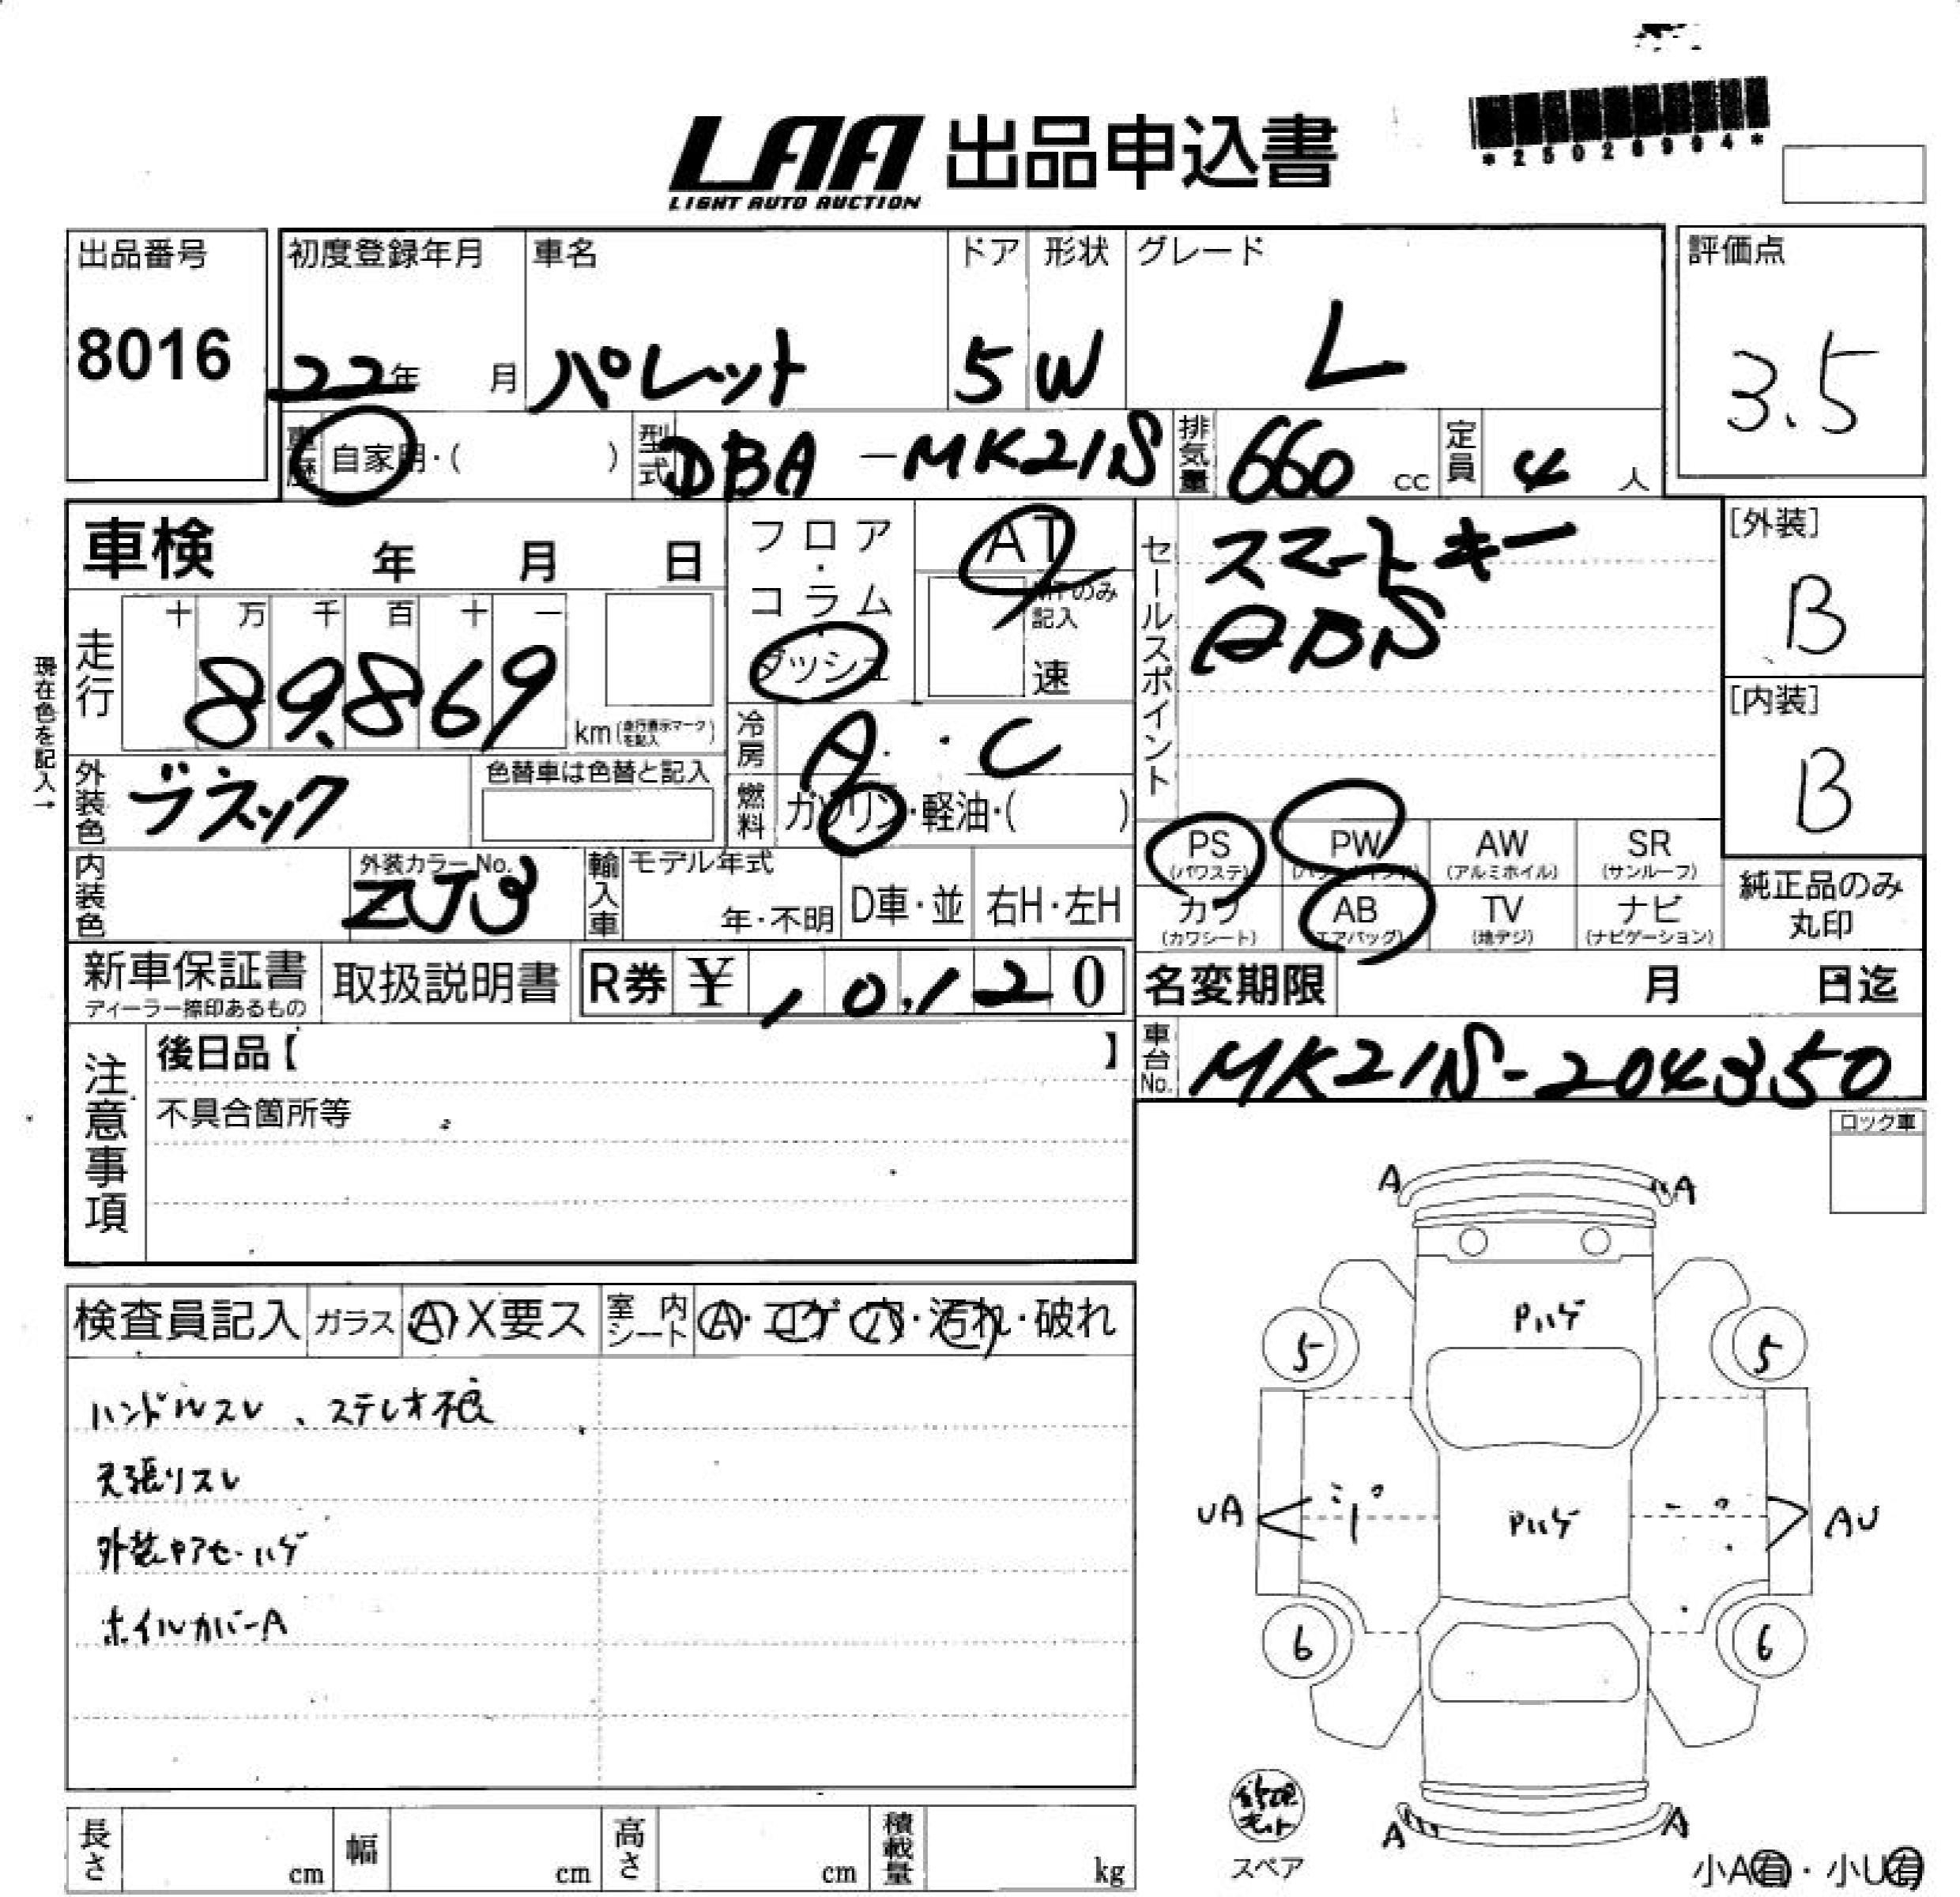 *25028994*
LAA 出品申込書
LIGHT AUTO AUCTION
出品番号
8016
初度登録年月
22年 月
車名
パレット
ドア
5
形状
W
グレード
L
評価点
3.5
車歴 自家用・( )
型式 DBA-MK21S
排気量 660 cc
定員 4 人
車検 年 月 日
フロア・コラム・ダッシュ
AT
MTのみ記入
速
セールスポイント
スマートキー
ABS
[外装]
B
[内装]
B
現在色を記入→
走行
十 万 千 百 十 一
89,869
km(走行表示マークを記入)
冷房 A・C
燃料 ガソリン・軽油・( )
外装色 ブラック
色替車は色替と記入
PS (パワステ)
PW
AW (アルミホイル)
SR (サンルーフ)
カワ (カワシート)
AB (エアバッグ)
TV (地デジ)
ナビ (ナビゲーション)
純正品のみ
丸印
内装色
外装カラーNo.
ZJ3
輸入車
モデル年式
年・不明
D車・並
右H・左H
新車保証書
ディーラー捺印あるもの
取扱説明書
R券 ¥ 10,120
名変期限 月 日迄
車台No. MK21S-204350
注意事項
後日品【 】
不具合箇所等
ロック車
検査員記入
ガラス A X要ス
室内シート A・コゲ 穴・汚れ・破れ
ハンドルスレ、ステレオ不良
天張りスレ
外装ヤアセ・ハゲ
ホイルカバーA
A A
Pハゲ
5 5
UA
AU
Pハゲ
6 6
A A
修理キット
スペア
小A有・小U有
長さ cm
幅 cm
高さ cm
積載量 kg